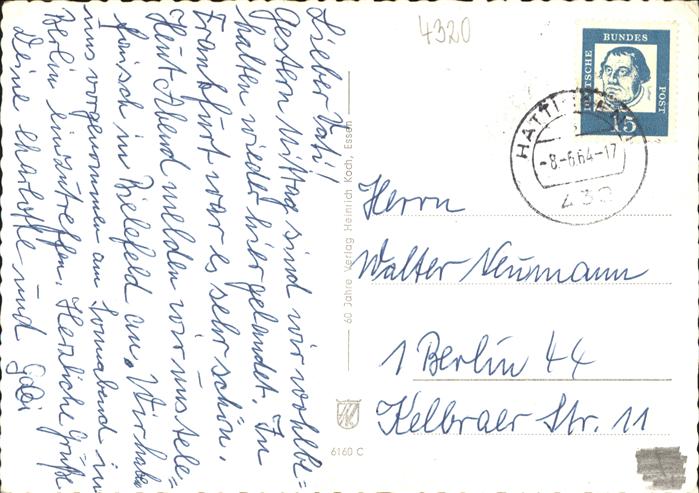 Lieber Vati!
Gestern Mittag sind wir wohlbe-
halten wieder hier gelandet. In
Frankfurt war es sehr schön.
Heut Abend melden wir uns tele-
fonisch in Bielefeld an. Wir haben
uns vorgenommen am Sonnabend in
Berlin einzutreffen. Herzliche Grüße
Deine Charlotte und
60 Jahre Verlag Heinrich Koch, Essen
6160 C
4320
DEUTSCHE BUNDES POST
15
HATTINGEN
-8.-6.64-17
432
Herrn
Walter Neumann
1 Berlin 44
Kelbraer Str. 11